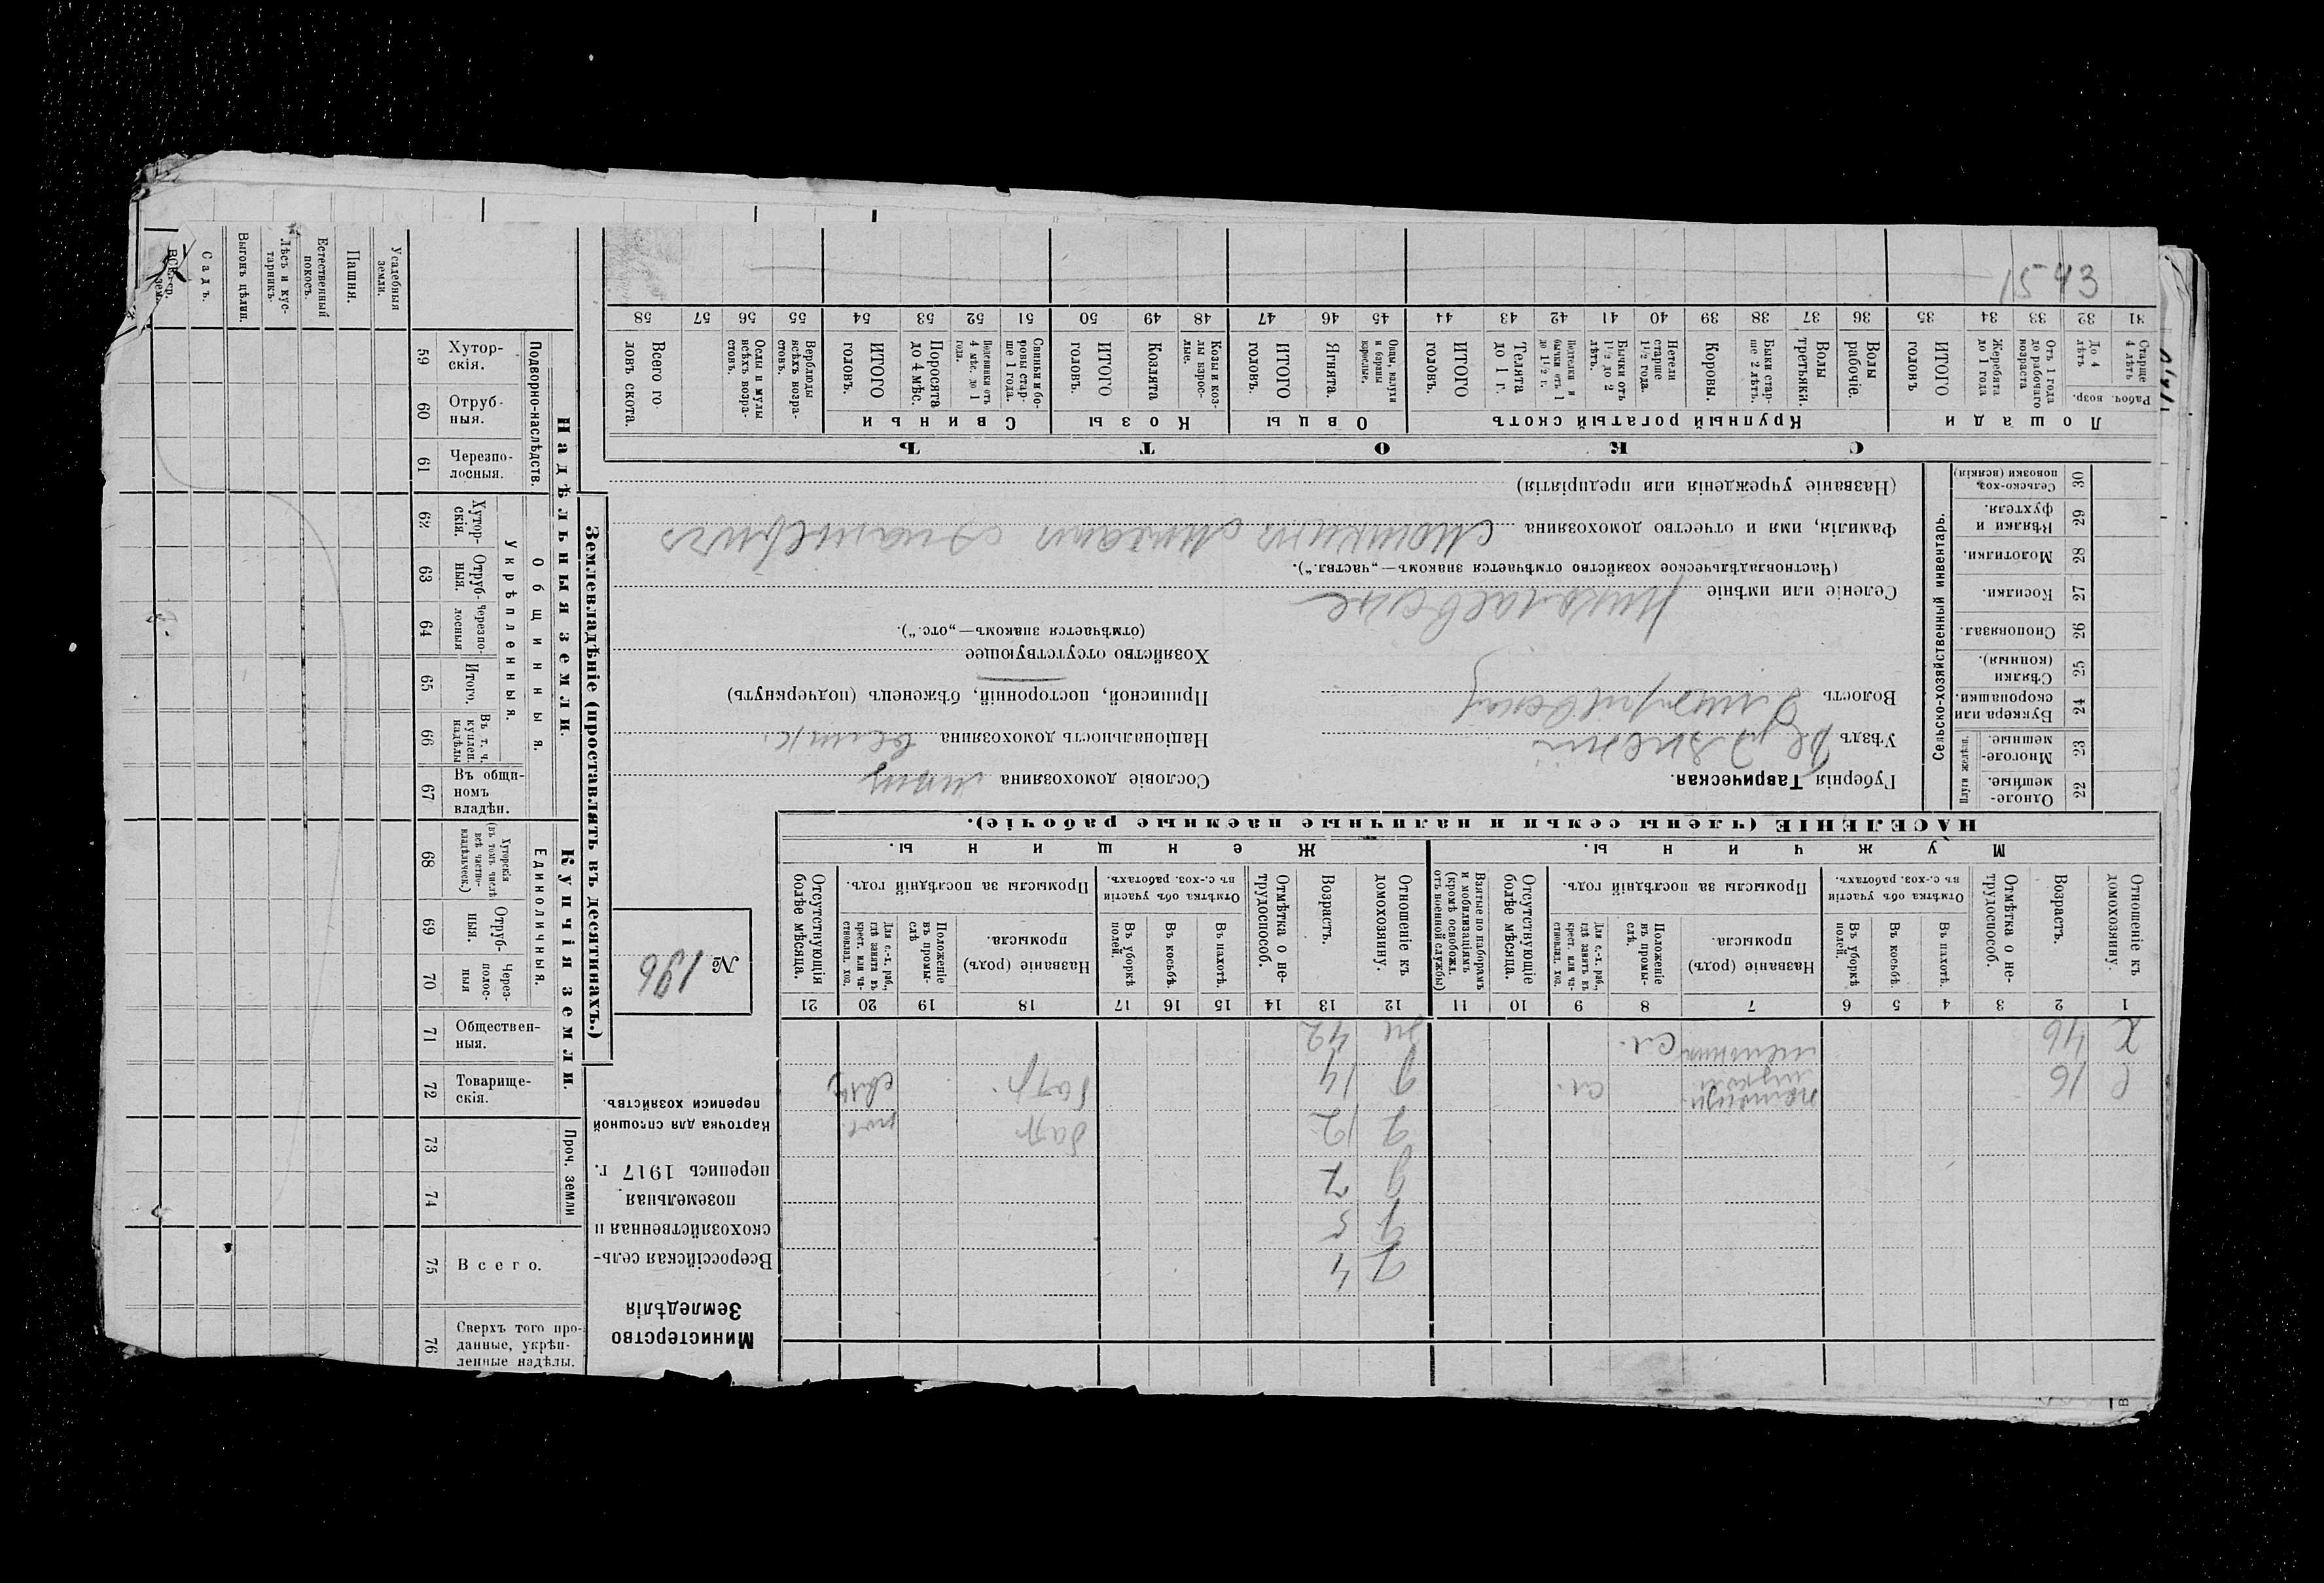 Министерство
Земледѣлія
Всероссійская сель-
скохозяйственная и
поземельная
перепись 1917 г.
Карточка для сплошной
переписи хозяйствъ.
№ 196
НАСЕЛЕНІЕ (члены семьи и наличные наемные рабочіе).
Мужчины.
Женщины.
Отношеніе къ домохозяину.
Возрастъ.
Отмѣтка о не-трудоспособ.
Отмѣтка объ участіи въ с.-хоз. работахъ.
Въ пахотѣ.
Въ косьбѣ.
Въ уборкѣ полей.
Промыслы за послѣдній годъ.
Названіе (родъ) промысла.
Положеніе въ промы-слѣ.
Для с.-х. раб., гдѣ занятъ въ крест. или ча-стновлад. хоз.
Отсутствующіе болѣе мѣсяца.
Взятые по наборамъ и мобилизаціямъ (кромѣ освобожд. отъ военной службы)
Отношеніе къ домохозяину.
Возрастъ.
Отмѣтка о не-трудоспособ.
Отмѣтка объ участіи въ с.-хоз. работахъ.
Въ пахотѣ.
Въ косьбѣ.
Въ уборкѣ полей.
Промыслы за послѣдній годъ.
Названіе (родъ) промысла.
Положеніе въ промы-слѣ
Для с.-х. раб., гдѣ занята въ крест. или ча-стновлад. хоз.
Отсутствующія болѣе мѣсяца.
1 2 3 4 5 6 7 8 9 10 11 12 13 14 15 16 17 18 19 20 21
Х 46 сл. 42
С 16 сл. 14 батр.
12 батр
7
5
4
Губернія Таврическая.
Уѣздъ
Волость
Селеніе или имѣніе Николаевское
(Частновладѣльческое хозяйство отмѣчается знакомъ—„частвл.“).
Фамилія, имя и отчество домохозяина
(Названіе учрежденія или предпріятія)
Сословіе домохозяина
Національность домохозяина велик.
Приписной, посторонній, бѣженецъ (подчеркнуть)
Хозяйство отсутствующее
(отмѣчается знакомъ—„отс.“).
Сельско-хозяйственный инвентарь.
Плуги желѣзн.
Одноле-мешные. 22
Многоле-мешные. 23
Буккера или скоропашки. 24
Сѣялки (конныя). 25
Сноповязал. 26
Косилки. 27
Молотилки. 28
Вѣялки и фухтеля. 29
Сельско-хоз. повозки (всякія) 30
СКОТЪ
Лошади
Рабоч. возр.
Старше 4 лѣтъ 31
До 4 лѣтъ 32
Отъ 1 года до рабочаго возраста 33
Жеребята до 1 года 34
ИТОГО головъ 35
Крупный рогатый скотъ
Волы рабочіе. 36
Волы третьяки. 37
Быки стар-ше 2 лѣтъ. 38
Коровы. 39
Нетели старше 1½ года. 40
Бычки отъ 1½ до 2 лѣтъ. 41
Подтелки и бычки отъ 1 до 1½ г. 42
Телята до 1 г. 43
ИТОГО головъ. 44
Овцы
Овцы, валухи и бараны взрослые. 45
Ягнята. 46
ИТОГО головъ. 47
Козы
Козы и коз-лы взрос-лые. 48
Козлята 49
ИТОГО головъ. 50
Свиньи
Свиньи и бо-ровы стар-ше 1 года. 51
Подсвинки отъ 4 мѣс. до 1 года. 52
Поросята до 4 мѣс. 53
ИТОГО головъ. 54
Верблюды всѣхъ возра-стовъ. 55
Ослы и мулы всѣхъ возра-стовъ. 56
57
Всего го-ловъ скота. 58
1543
Землевладѣніе (проставлять въ десятинахъ.)
Надѣльныя земли.
Подворно-наслѣдств.
Хутор-скія. 59
Отруб-ныя. 60
Черезпо-лосныя. 61
Общинныя.
Укрѣпленныя.
Хутор-скія. 62
Отруб-ныя. 63
Черезпо-лосныя 64
Итого. 65
Въ т. ч. куплен. надѣлы 66
Въ общи-номъ владѣн. 67
Купчія земли.
Единоличныя.
Хуторскія (въ томъ числѣ всѣ частно-владѣльческ.) 68
Отруб-ныя. 69
Через-полос-ныя 70
Обществен-ныя. 71
Товарище-скія. 72
Проч. земли
73
74
Всего. 75
Сверхъ того про-данные, укрѣп-ленные надѣлы. 76
Усадебныя земли.
Пашня.
Естественный покосъ.
Лѣсъ и кус-тарникъ.
Выгонъ цѣлин.
Садъ.